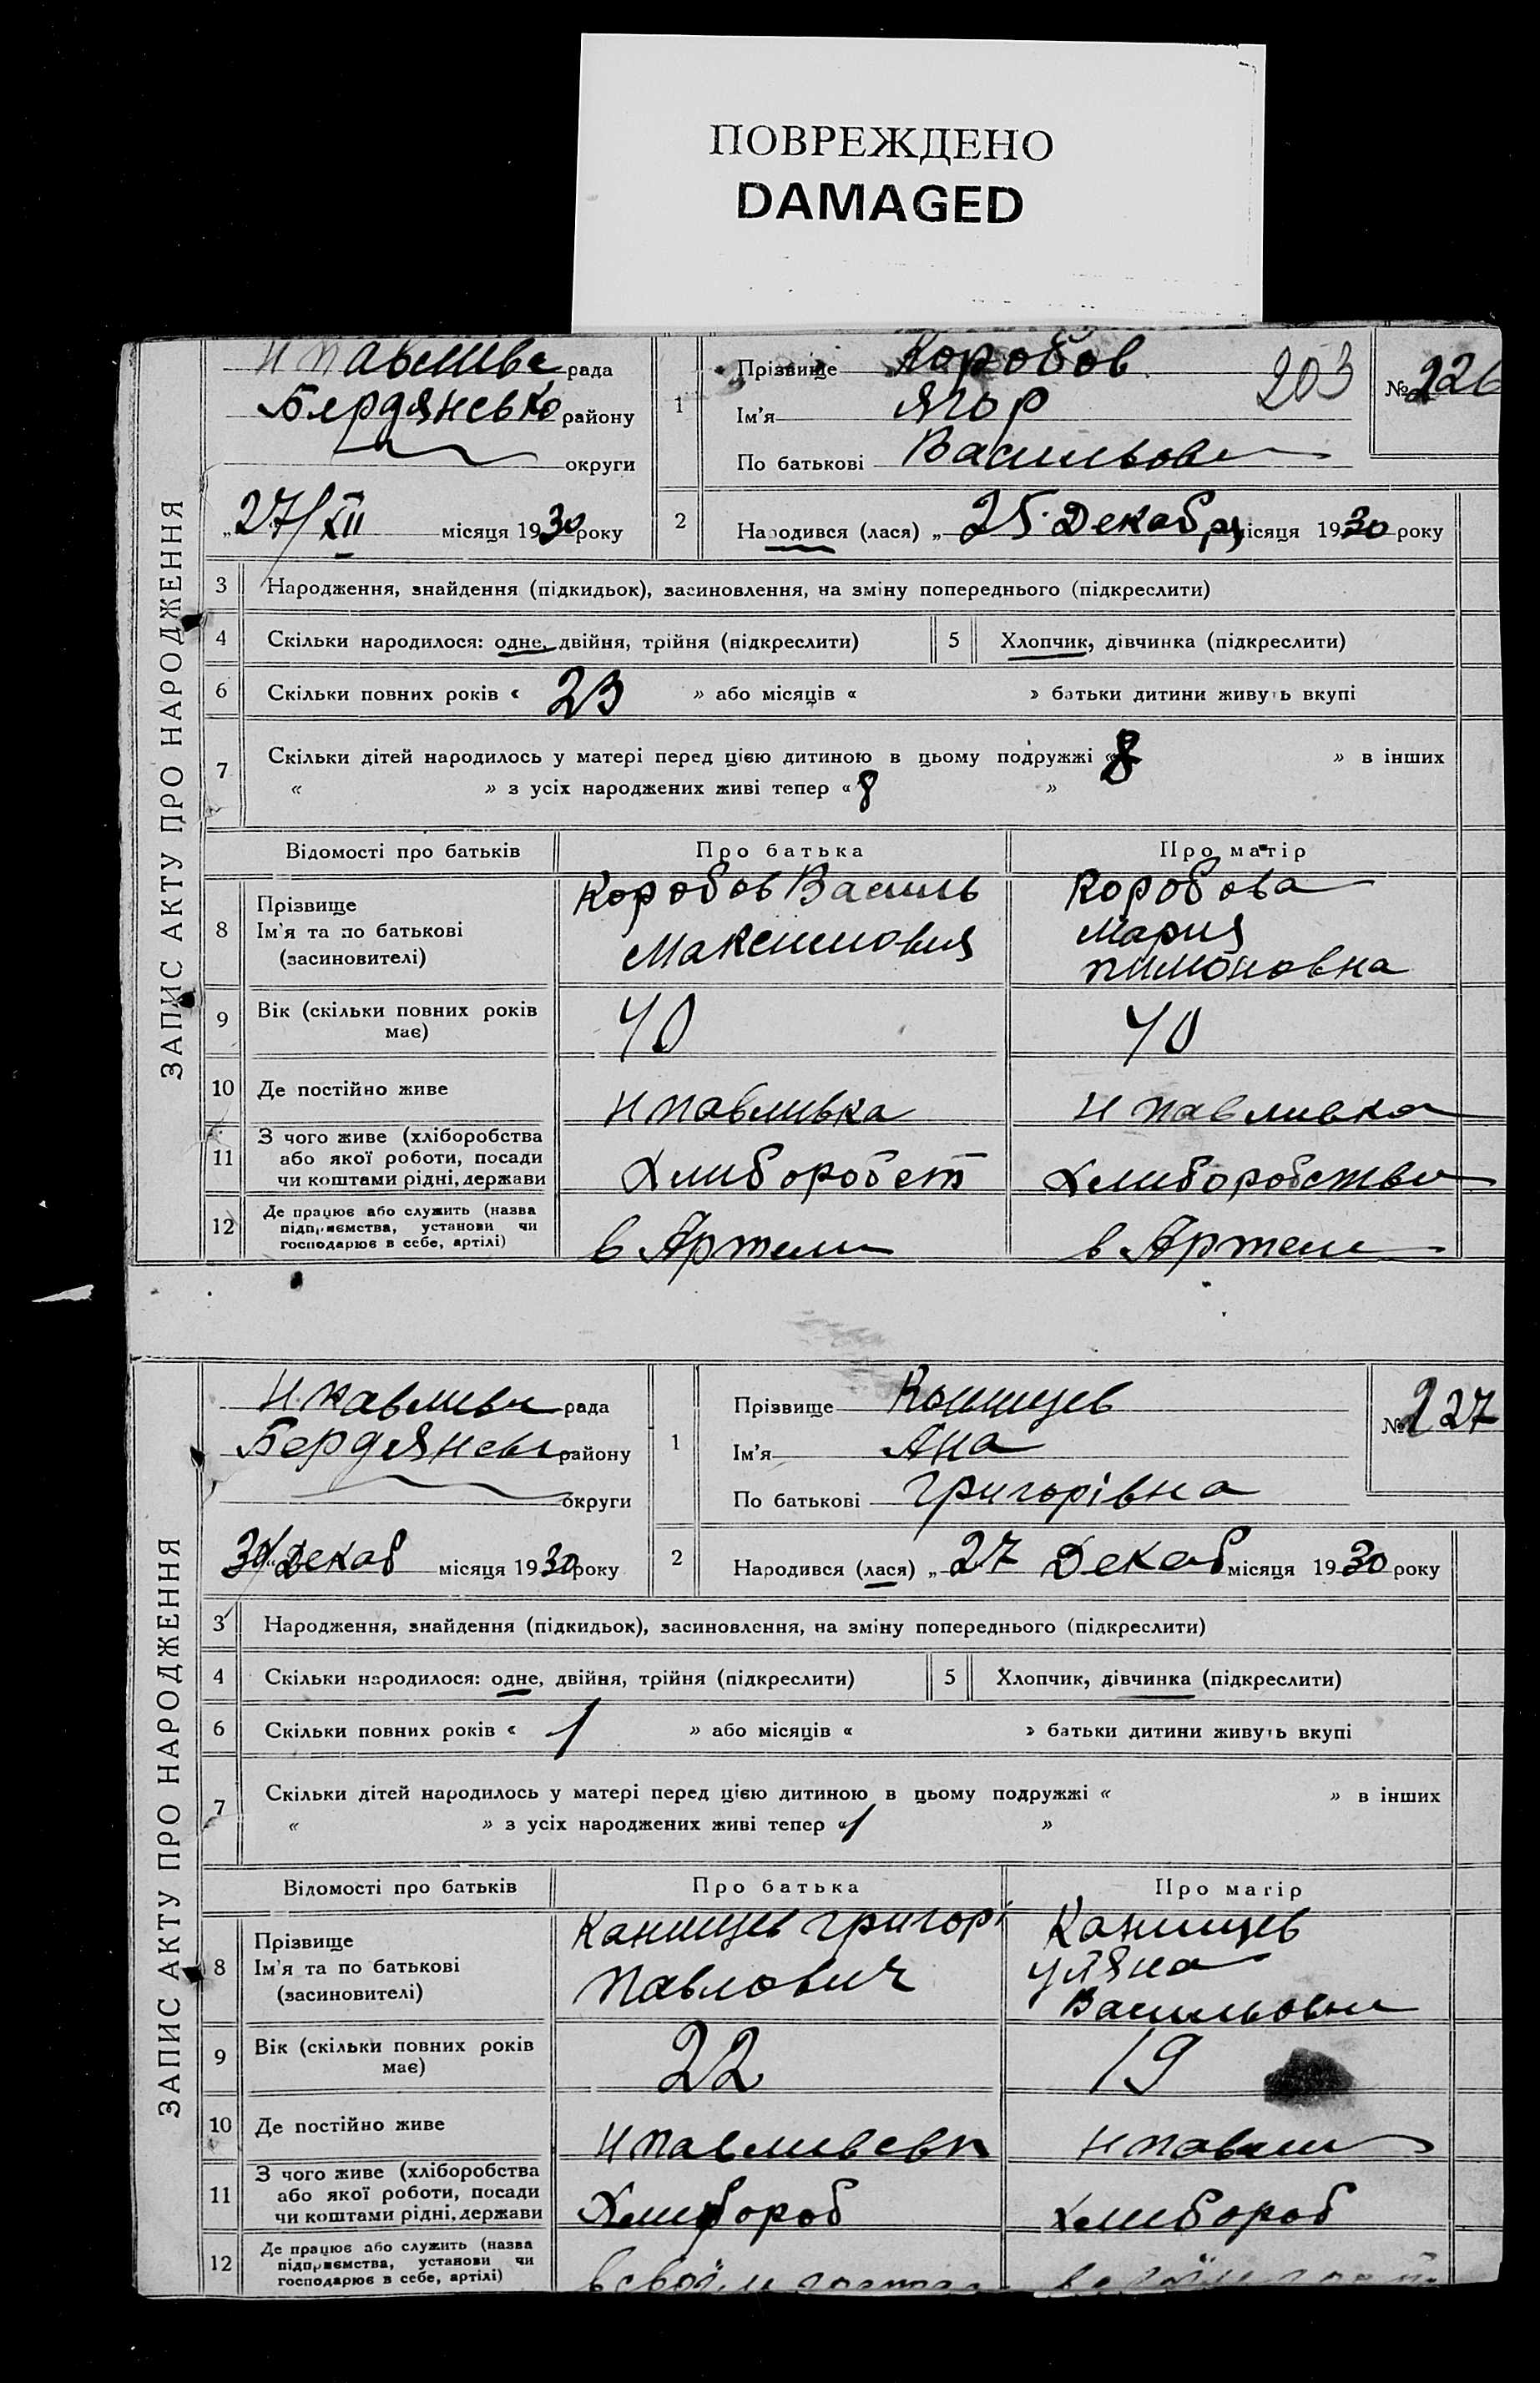 ПОВРЕЖДЕНО
DAMAGED
ЗАПИС АКТУ ПРО НАРОДЖЕННЯ
Н павливс рада
Бердянсько району
округи
„27/XII місяця 1930 року
1 Прізвище Коробов 203 № 226
Ім'я Ягор
По батькові Васильов
2 Народився (лася) „25 Декабря місяця 1930 року
3 Народження, знайдення (підкидьок), засиновлення, на зміну попереднього (підкреслити)
4 Скільки народилося: одне, двійня, трійня (підкреслити) 5 Хлопчик, дівчинка (підкреслити)
6 Скільки повних років « 23 » або місяців « » батьки дитини живуть вкупі
7 Скільки дітей народилось у матері перед цією дитиною в цьому подружжі « 8 » в інших
« » з усіх народжених живі тепер « 8 »
Відомості про батьків Про батька Про матір
8 Прізвище
Ім'я та по батькові
(засиновителі)
Коробов Василь
Максимович
Коробова
Мария
пимоновна
9 Вік (скільки повних років
має)
40 40
10 Де постійно живе Н павливка Н павливка
11 З чого живе (хліборобства
або якої роботи, посади
чи коштами рідні, держави
Хлиборобст Хлиборобство
12 Де працює або служить (назва
підприємства, установи чи
господарює в себе, артілі)
в Артели в Артели
ЗАПИС АКТУ ПРО НАРОДЖЕННЯ
Н павливк рада
Бердянськ району
округи
30/Декаб місяця 1930 року
1 Прізвище Канищев № 227
Ім'я Ана
По батькові Григорівна
2 Народився (лася) „27 Декаб місяця 1930 року
3 Народження, знайдення (підкидьок), засиновлення, на зміну попереднього (підкреслити)
4 Скільки народилося: одне, двійня, трійня (підкреслити) 5 Хлопчик, дівчинка (підкреслити)
6 Скільки повних років « 1 » або місяців « » батьки дитини живуть вкупі
7 Скільки дітей народилось у матері перед цією дитиною в цьому подружжі « » в інших
« » з усіх народжених живі тепер « 1 »
Відомості про батьків Про батька Про матір
8 Прізвище
Ім'я та по батькові
(засиновителі)
Канищев Григорі
Павлович
Канищев
Уляна
Васильовна
9 Вік (скільки повних років
має)
22 19
10 Де постійно живе Н павливевк Н павли
11 З чого живе (хліборобства
або якої роботи, посади
чи коштами рідні, держави
Хлибороб Хлибороб
12 Де працює або служить (назва
підприємства, установи чи
господарює в себе, артілі)
в своїм